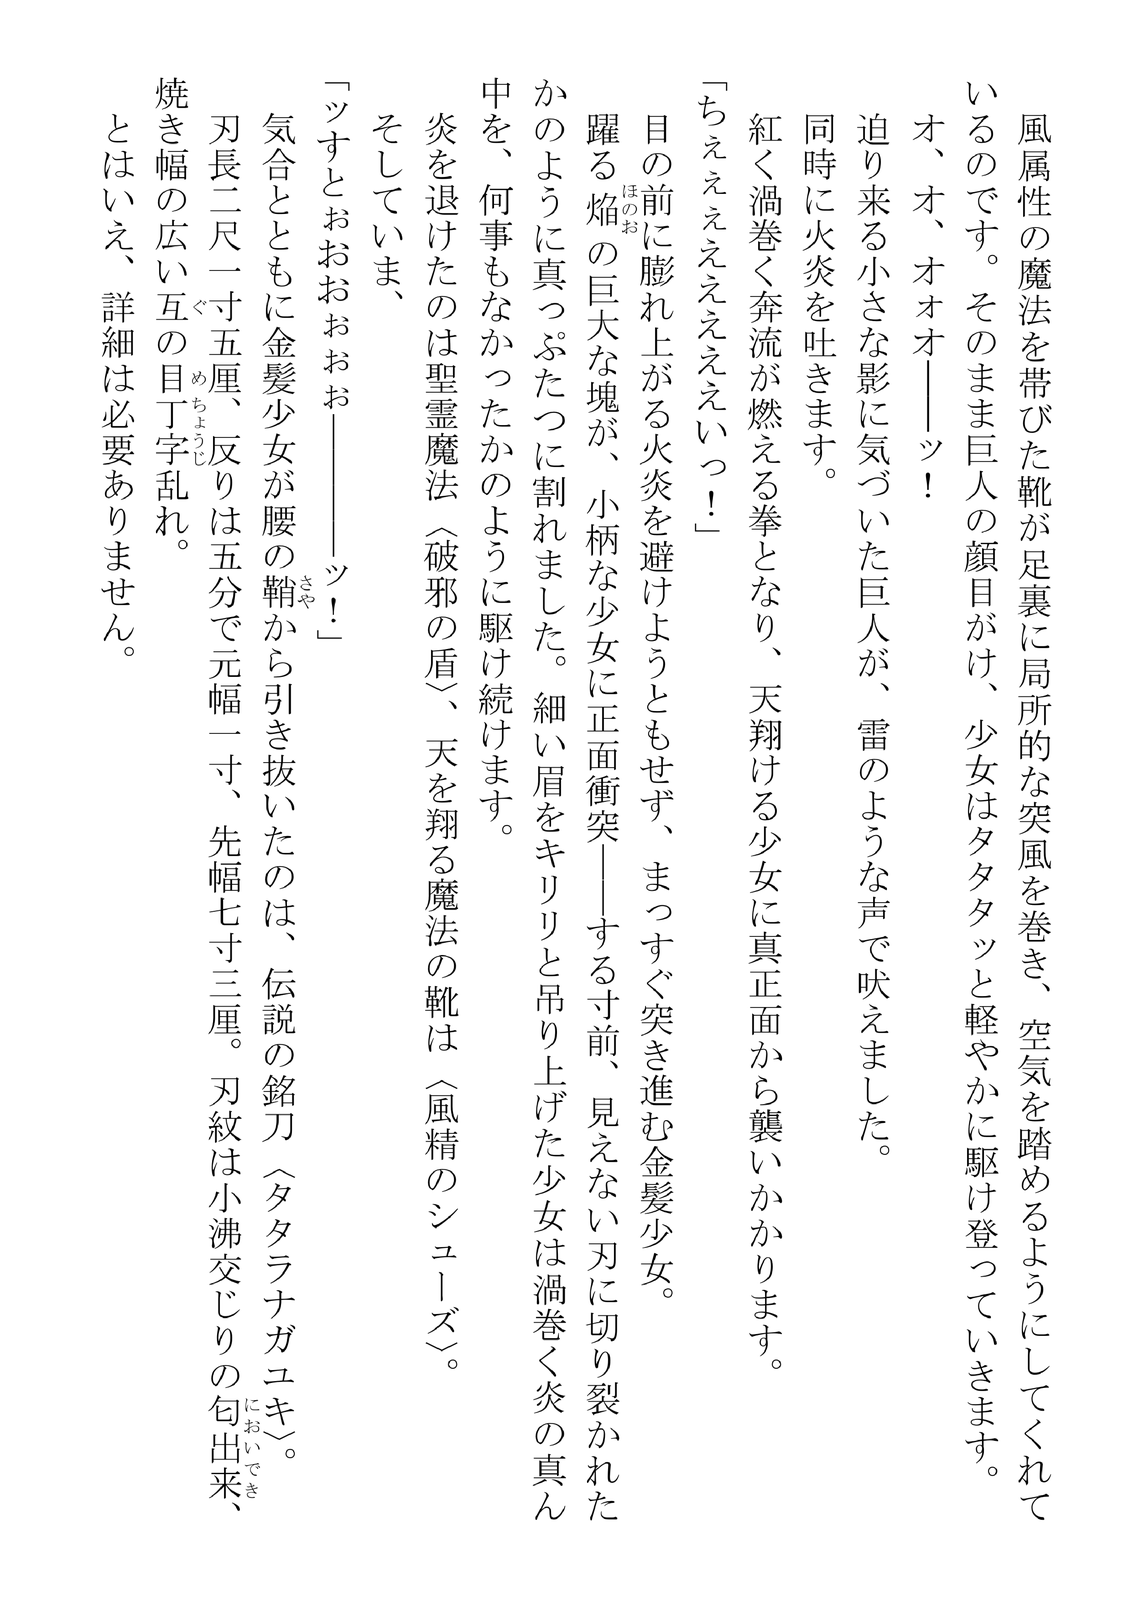 風属性の魔法を帯びた靴が足裏に局所的な突風を巻き、空気を踏めるようにしてくれて
いるのです。そのまま巨人の顔目がけ、少女はタタタッと軽やかに駆け登っていきます。
オ、オ、オォオ――ッ！
迫り来る小さな影に気づいた巨人が、雷のような声で吠えました。
同時に火炎を吐きます。
紅く渦巻く奔流が燃える拳となり、天翔ける少女に真正面から襲いかかります。
「ちぇぇぇえええええいっ！」
目の前に膨れ上がる火炎を避けようともせず、まっすぐ突き進む金髪少女。
躍る焔の巨大な塊が、小柄な少女に正面衝突――する寸前、見えない刃に切り裂かれた
かのように真っぷたつに割れました。細い眉をキリリと吊り上げた少女は渦巻く炎の真ん
中を、何事もなかったかのように駆け続けます。
炎を退けたのは聖霊魔法〈破邪の盾〉、天を翔る魔法の靴は〈風精のシューズ〉。
そしていま、
「ッすとぉおおぉぉぉ――――ッ！」
気合とともに金髪少女が腰の鞘から引き抜いたのは、伝説の銘刀〈タタラナガユキ〉。
刃長二尺一寸五厘、反りは五分で元幅一寸、先幅七寸三厘。刃紋は小沸交じりの匂出来、
焼き幅の広い互の目丁字乱れ。
とはいえ、詳細は必要ありません。